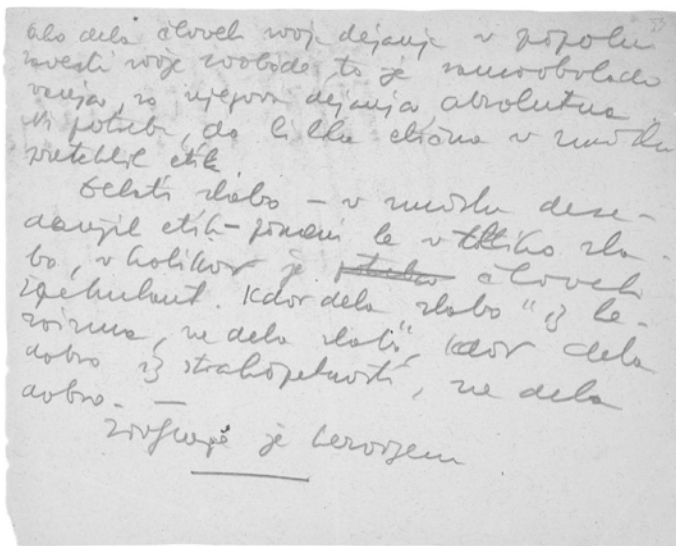 Ako dela človek svoja dejanja v popolni
zavesti svoje svobode, to je samoobvlado
vanja, so njegova dejanja absolutna.
Ni potreba, da bi bila etična v smislu
preteklih etik
Delati slabo – v smislu dose-
danjih etik – pomeni le v toliko sla-
bo, v kolikor je človek
špekulant. Kdor dela slabo "iz he-
roizma, ne dela slabo", kdor dela
dobro iz strahopetnosti, ne dela
dobro. —
je heroizem